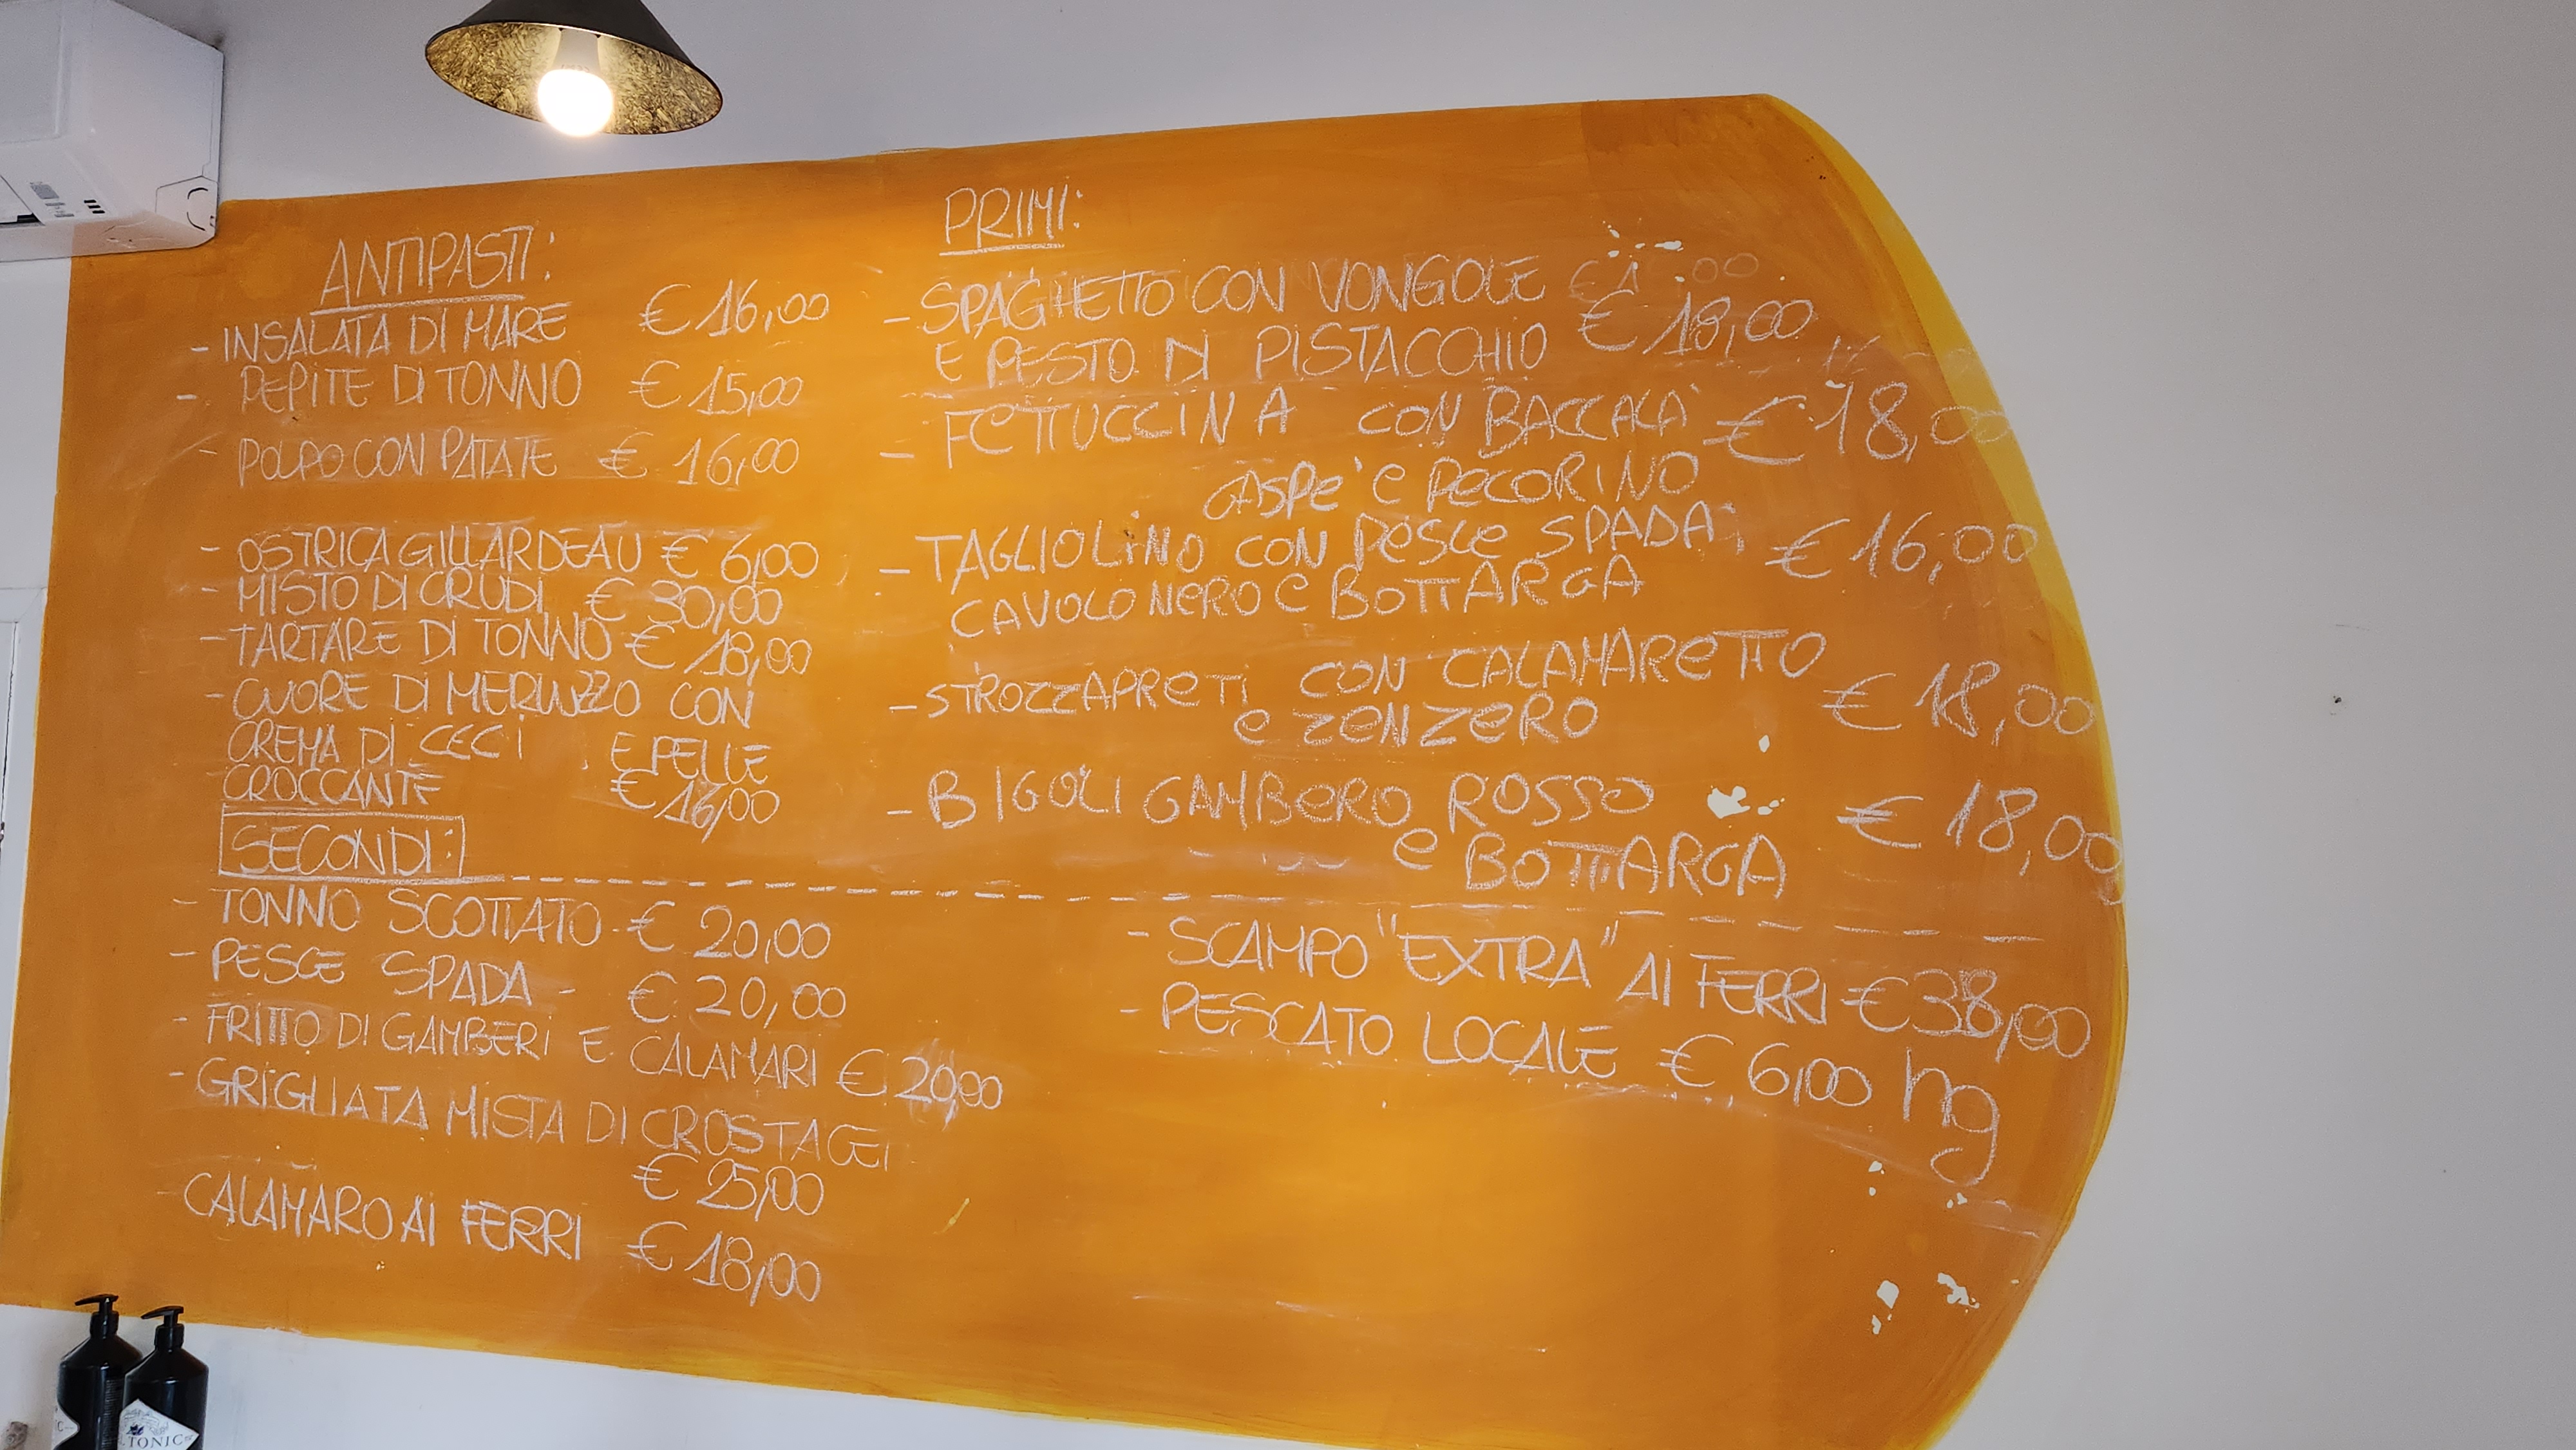 ANTIPASTI:
- INSALATA DI MARE € 16,00
- PEPITE DI TONNO € 15,00
- POLPO CON PATATE € 16,00
- OSTRICA GILLARDEAU € 6,00
- MISTO DI CRUDI € 30,00
- TARTARE DI TONNO € 18,00
- CUORE DI MERLUZZO CON
CREMA DI CECI E PELLE
CROCCANTE € 16,00
PRIMI:
- SPAGHETTO CON VONGOLE
E PESTO DI PISTACCHIO € 18,00
- FETTUCCINA CON BACCALA' € 18,00
CASPE' E PECORINO
- TAGLIOLINO CON PESCE SPADA, € 16,00
CAVOLO NERO E BOTTARGA
- STROZZAPRETI CON CALAMARETTO
E ZENZERO € 18,00
- BIGOLI GAMBERO ROSSO € 18,00
E BOTTARGA
SECONDI:
- TONNO SCOTTATO - € 20,00
- PESCE SPADA - € 20,00
- FRITTO DI GAMBERI E CALAMARI € 20,00
- GRIGLIATA MISTA DI CROSTACEI
€ 25,00
- CALAMARO AI FERRI € 18,00
- SCAMPO "EXTRA" AI FERRI - € 38,00
- PESCATO LOCALE € 6,00 hg
TONIC